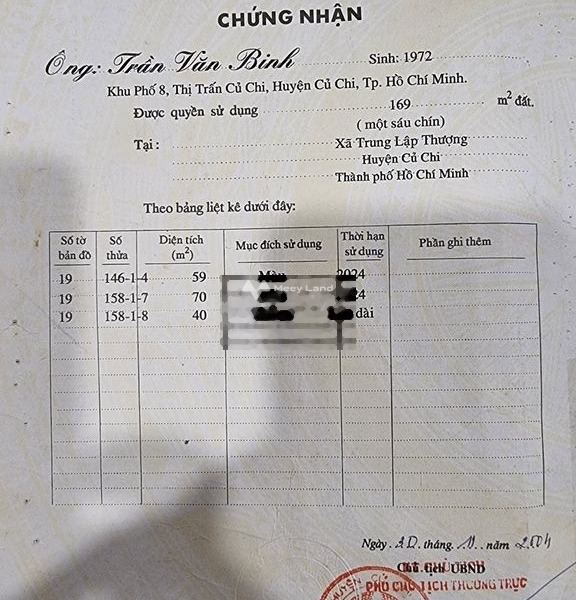 CHỨNG NHẬN
Ông: Trần Văn Binh Sinh: 1972
Khu Phố 8, Thị Trấn Củ Chi, Huyện Củ Chi, Tp. Hồ Chí Minh.
Được quyền sử dụng 169 m² đất.
( một sáu chín)
Tại : Xã Trung Lập Thượng
Huyện Củ Chi
Thành phố Hồ Chí Minh
Theo bảng liệt kê dưới đây:
Số tờ bản đồ Số thửa Diện tích (m²) Mục đích sử dụng Thời hạn sử dụng Phần ghi thêm
19 146-1-4 59 2024
19 158-1-7 70
19 158-1-8 40 dài
Meey Land
Ngày 20 tháng 11 năm 2004
Chủ tịch UBND
PHÓ CHỦ TỊCH THƯỜNG TRỰC